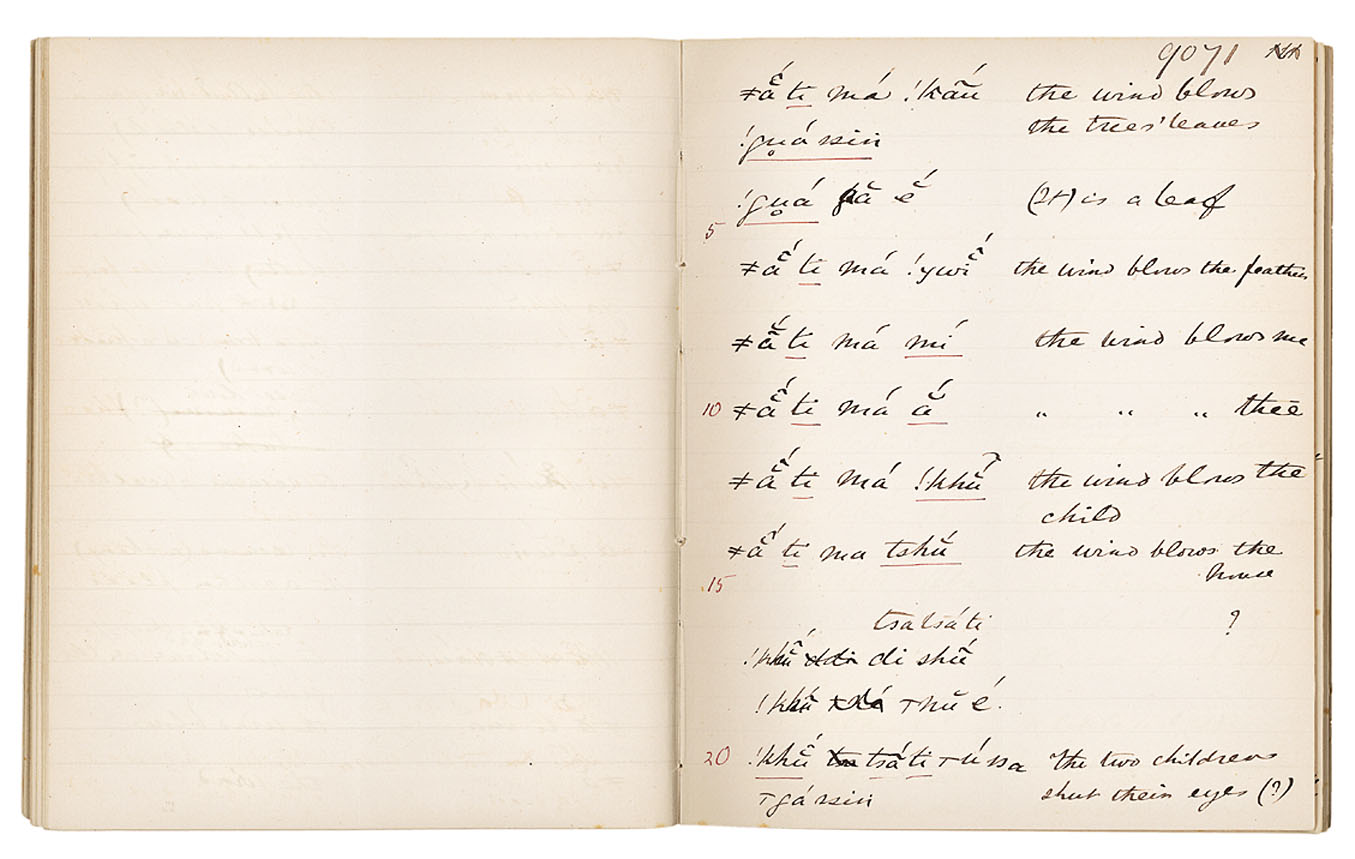 9071
ǂắ ti má !kãú the wind blows
!gu̥ássin the trees' leaves
!gu̥á ă é (it) is a leaf
5
ǂắ ti má !ywĩ the wind blows the feathers
ǂắ ti má mí the wind blows me
10 ǂắ ti má ắ " " " thee
ǂắ ti má !khũ the wind blows the
child
ǂắ ti ma tshú the wind blows the
house
15
tsatsáti ?
!khũ di shú
!khú é.
20 !khũ tsá ti the two children
shut their eyes (?)